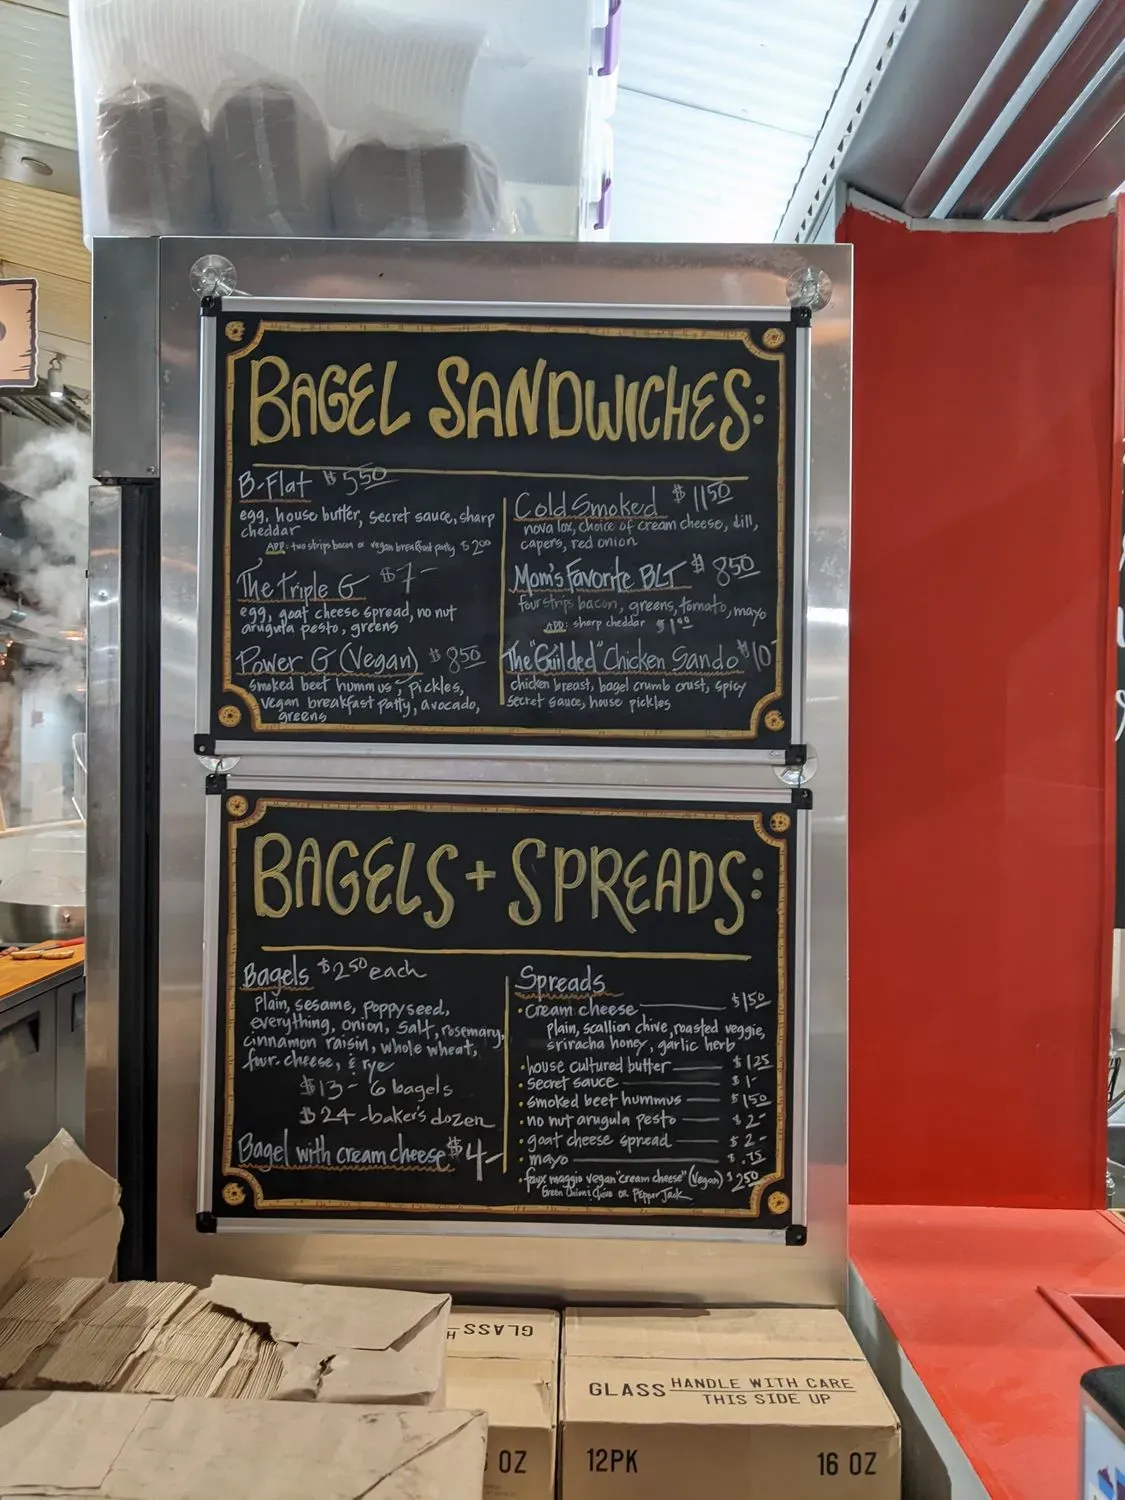 BAGEL SANDWICHES:
B-Flat $5.50
egg, house butter, secret sauce, sharp
cheddar
ADD: two strips bacon or vegan breakfast patty $2.00
The Triple G $7-
egg, goat cheese spread, no nut
arugula pesto, greens
Power G (Vegan) $8.50
smoked beet hummus, pickles,
vegan breakfast patty, avocado,
greens
Cold Smoked $11.50
nova lox, choice of cream cheese, dill,
capers, red onion
Mom's Favorite BLT $8.50
four strips bacon, greens, tomato, mayo
ADD: sharp cheddar $1.00
The "Guilded" Chicken Sando $10-
chicken breast, bagel crumb crust, spicy
secret sauce, house pickles
BAGELS + SPREADS:
Bagels $2.50 each
Plain, sesame, poppyseed,
everything, onion, salt, rosemary,
cinnamon raisin, whole wheat,
four-cheese, & rye
$13- 6 bagels
$24-baker's dozen
Bagel with cream cheese $4-
Spreads
• cream cheese $1.50
plain, scallion chive, roasted veggie,
sriracha honey, garlic herb
• house cultured butter $1.25
• secret sauce $1-
• smoked beet hummus $1.50
• no nut arugula pesto $2-
• goat cheese spread $2-
• mayo $.75
• faux maggio vegan "cream cheese" (Vegan) $2.50
or Pepper Jack
GLASS H
OZ
GLASS HANDLE WITH CARE
THIS SIDE UP
12PK 16 OZ